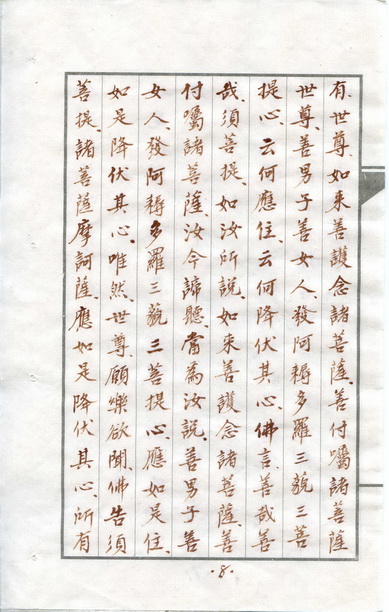 有、世尊、如来善護念諸菩薩、善付囑諸菩薩
世尊、善男子善女人、發阿耨多羅三藐三菩
提心、云何應住、云何降伏其心、佛言、善哉善
哉、須菩提、如汝所說、如来善護念諸菩薩、善
付囑諸菩薩、汝今諦聽、當為汝說、善男子善
女人、發阿耨多羅三藐三菩提心、應如是住、
如是降伏其心、唯然世尊、願樂欲聞、佛告須
菩提、諸菩薩摩訶薩、應如是降伏其心、所有
·8·